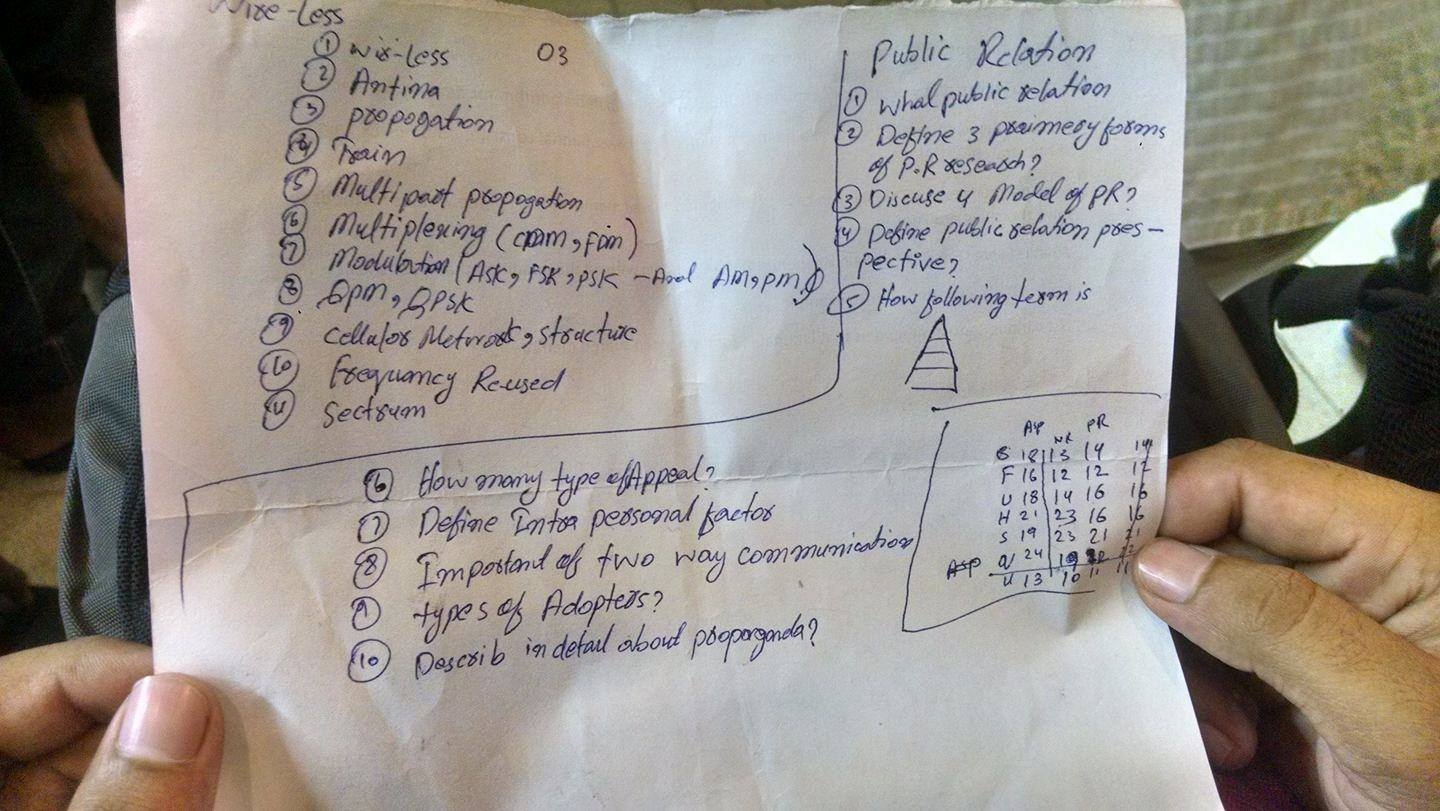 Wire-Less
① wir-less 03
② Antina
③ propogation
④ Train
⑤ Multipart propogation
⑥ Multiplexing (CDM, FDM)
⑦ Modulation (ASK, FSK, PSK - And AM, PM)
⑧ QPM, QPSK
⑨ Cellulor Network, structure
⑩ Frequancy Re-used
⑪ Sectrum
Public Relation
① What public relation
② Define 3 praimery forms
of P.R research?
③ Discuse 4 Model of PR?
④ Define public relation pres-
pective?
⑤ How following term is
⑥ How many type of Appeal?
⑦ Define Intra personal factor
⑧ Important of two way communication
⑨ types of Adopters?
⑩ Describ in detail about proporganda?
ASP NR PR
S 18 13 14 14
F 16 12 12 12
U 18 14 16 16
H 21 23 16 16
S 19 23 21 21
ASP Q 24 19
U 13 10 11 11